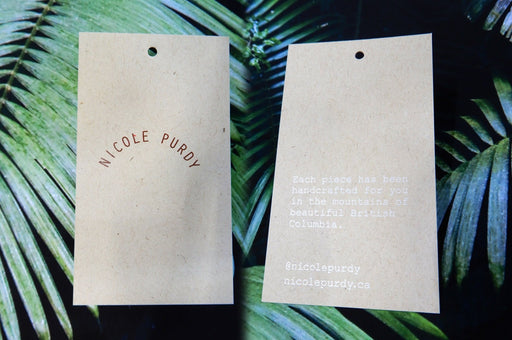 NICOLE PURDY
Each piece has been
handcrafted for you
in the mountains of
beautiful British
Columbia.
@nicolepurdy
nicolepurdy.ca